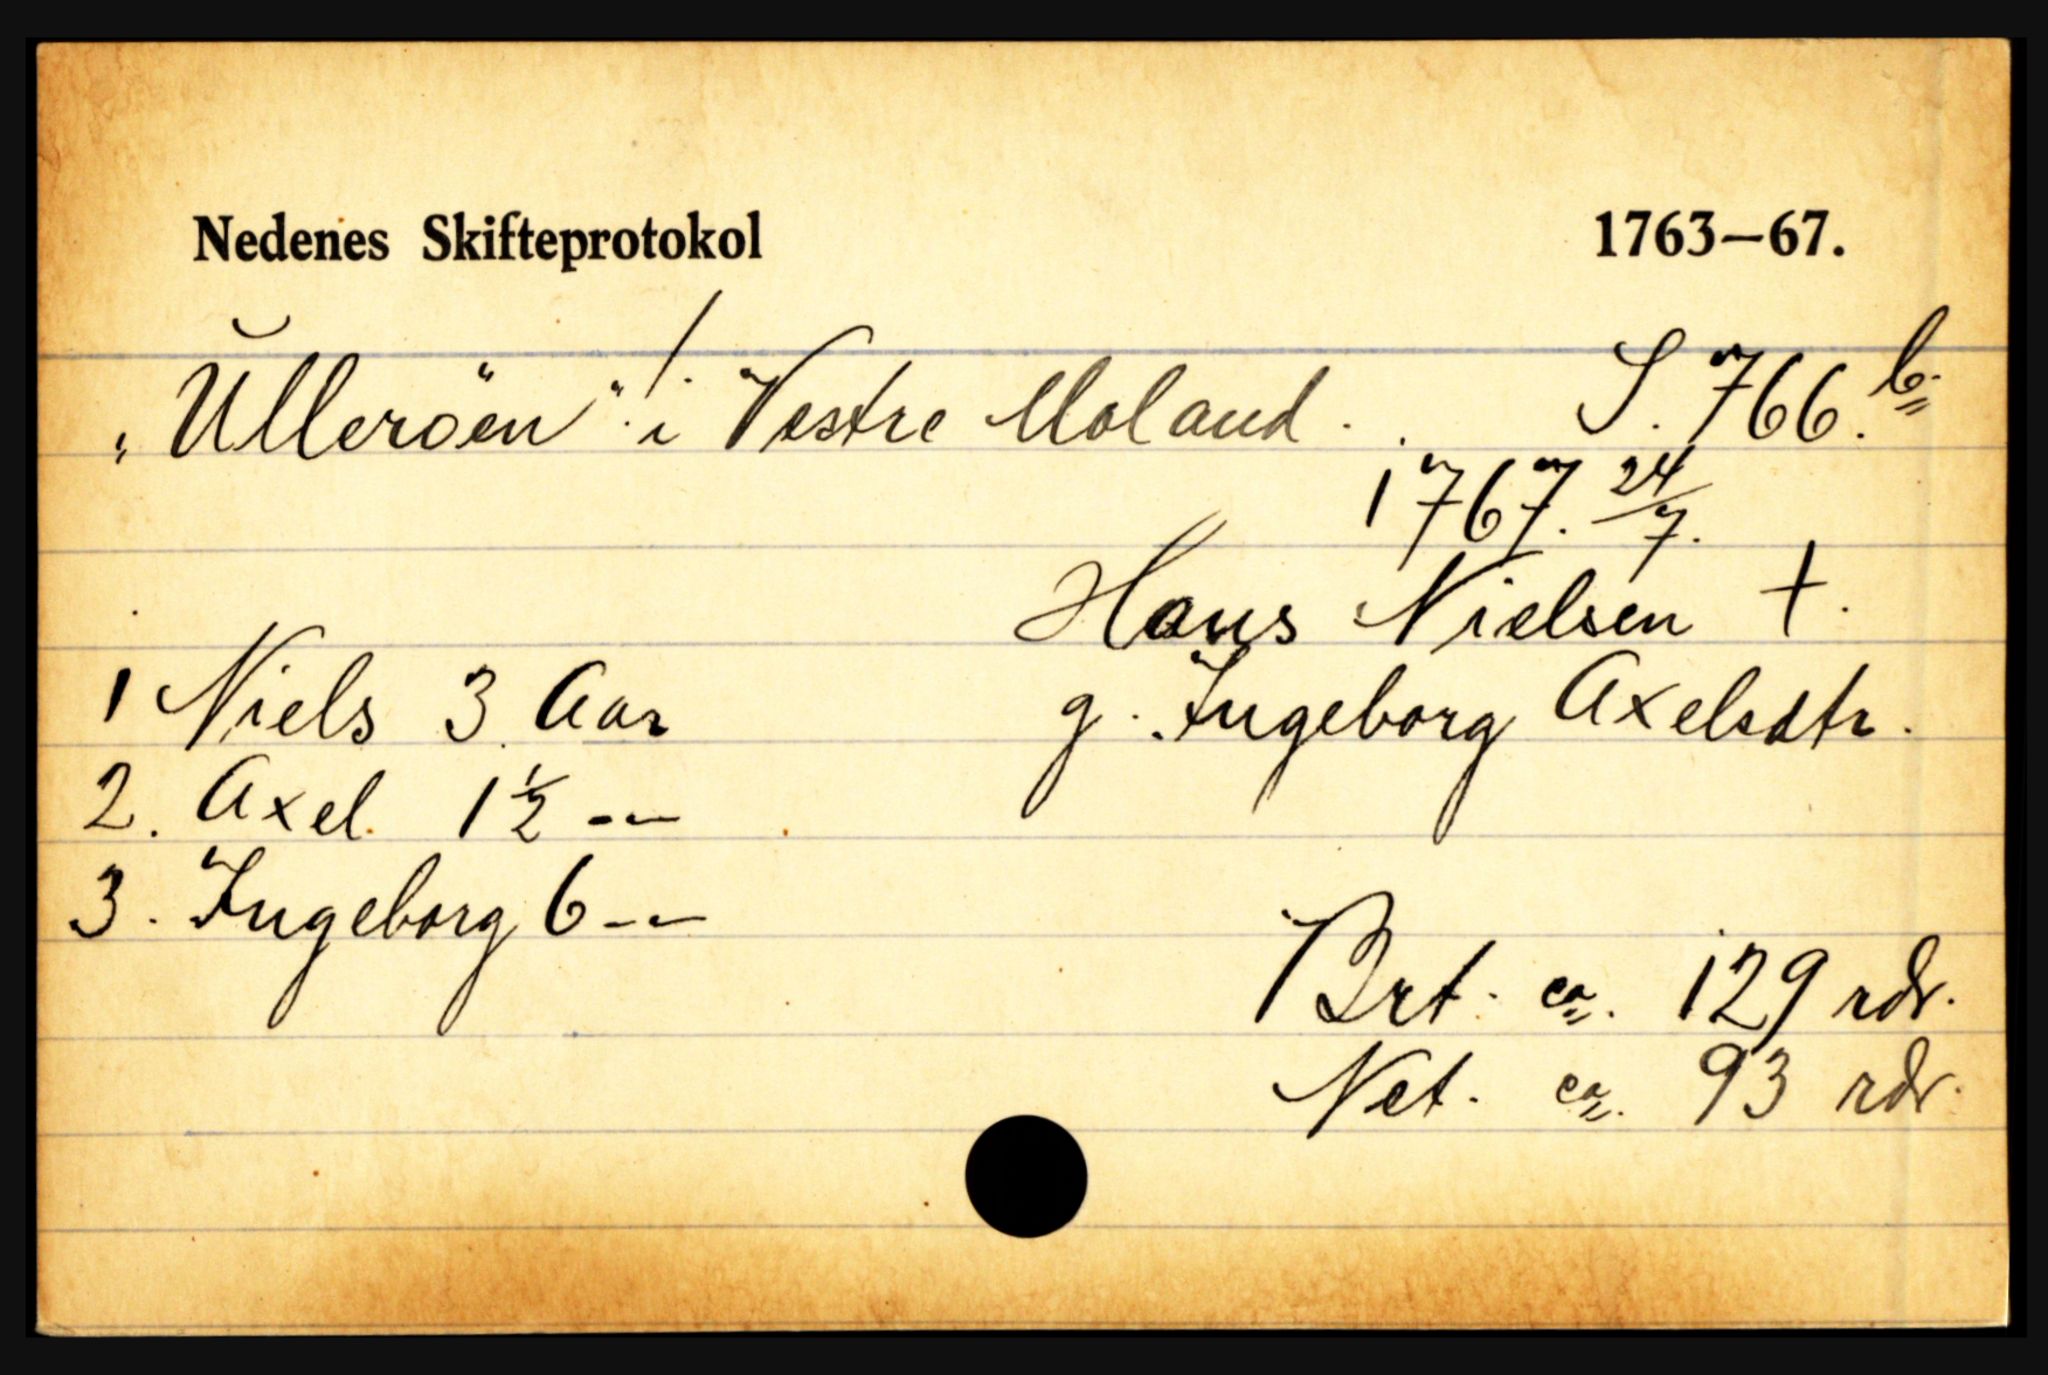 Nedenes Skifteprotokol 1763—67.
„Ulleröen" i Vestre Moland. S. 766.b
1767. 24/7.
Hans Nielsen †.
1 Niels 3 Aar g. Ingeborg Axelsdtr.
2. Axel 1½ --
3. Ingeborg 6 --
Brt. ca. 129 rdr.
Net. ca. 93 rdr.